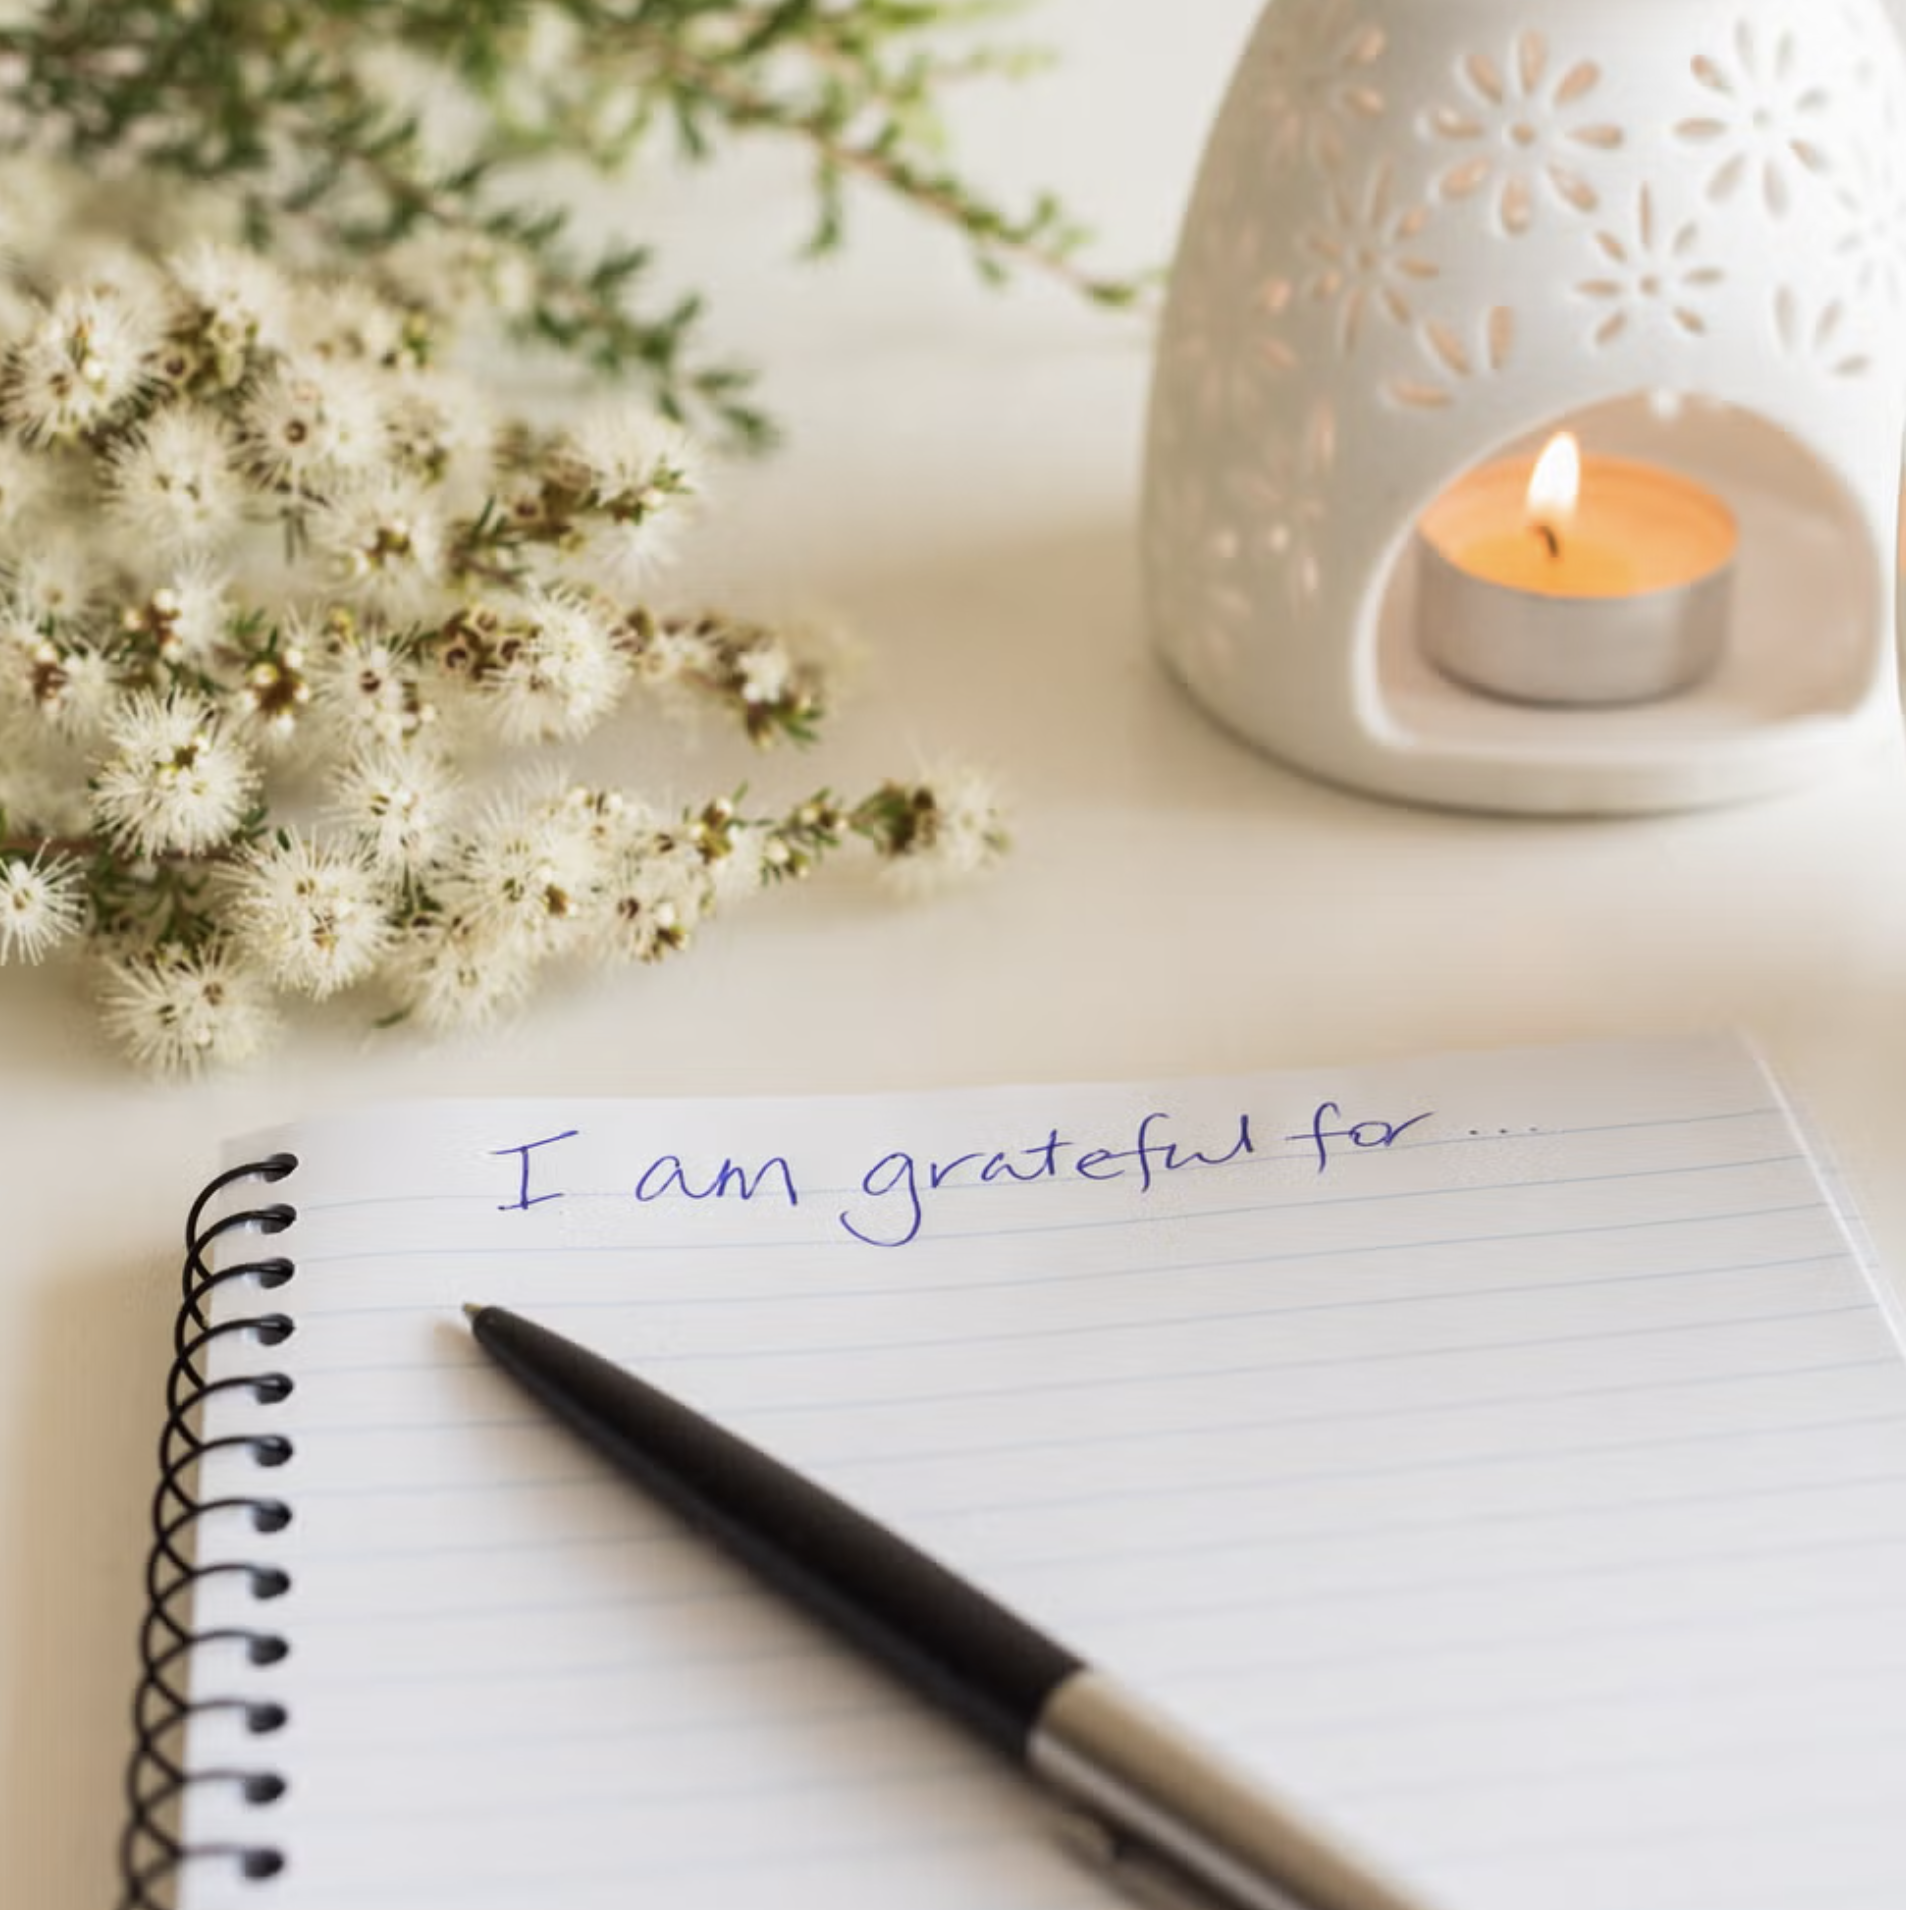 I am grateful for...